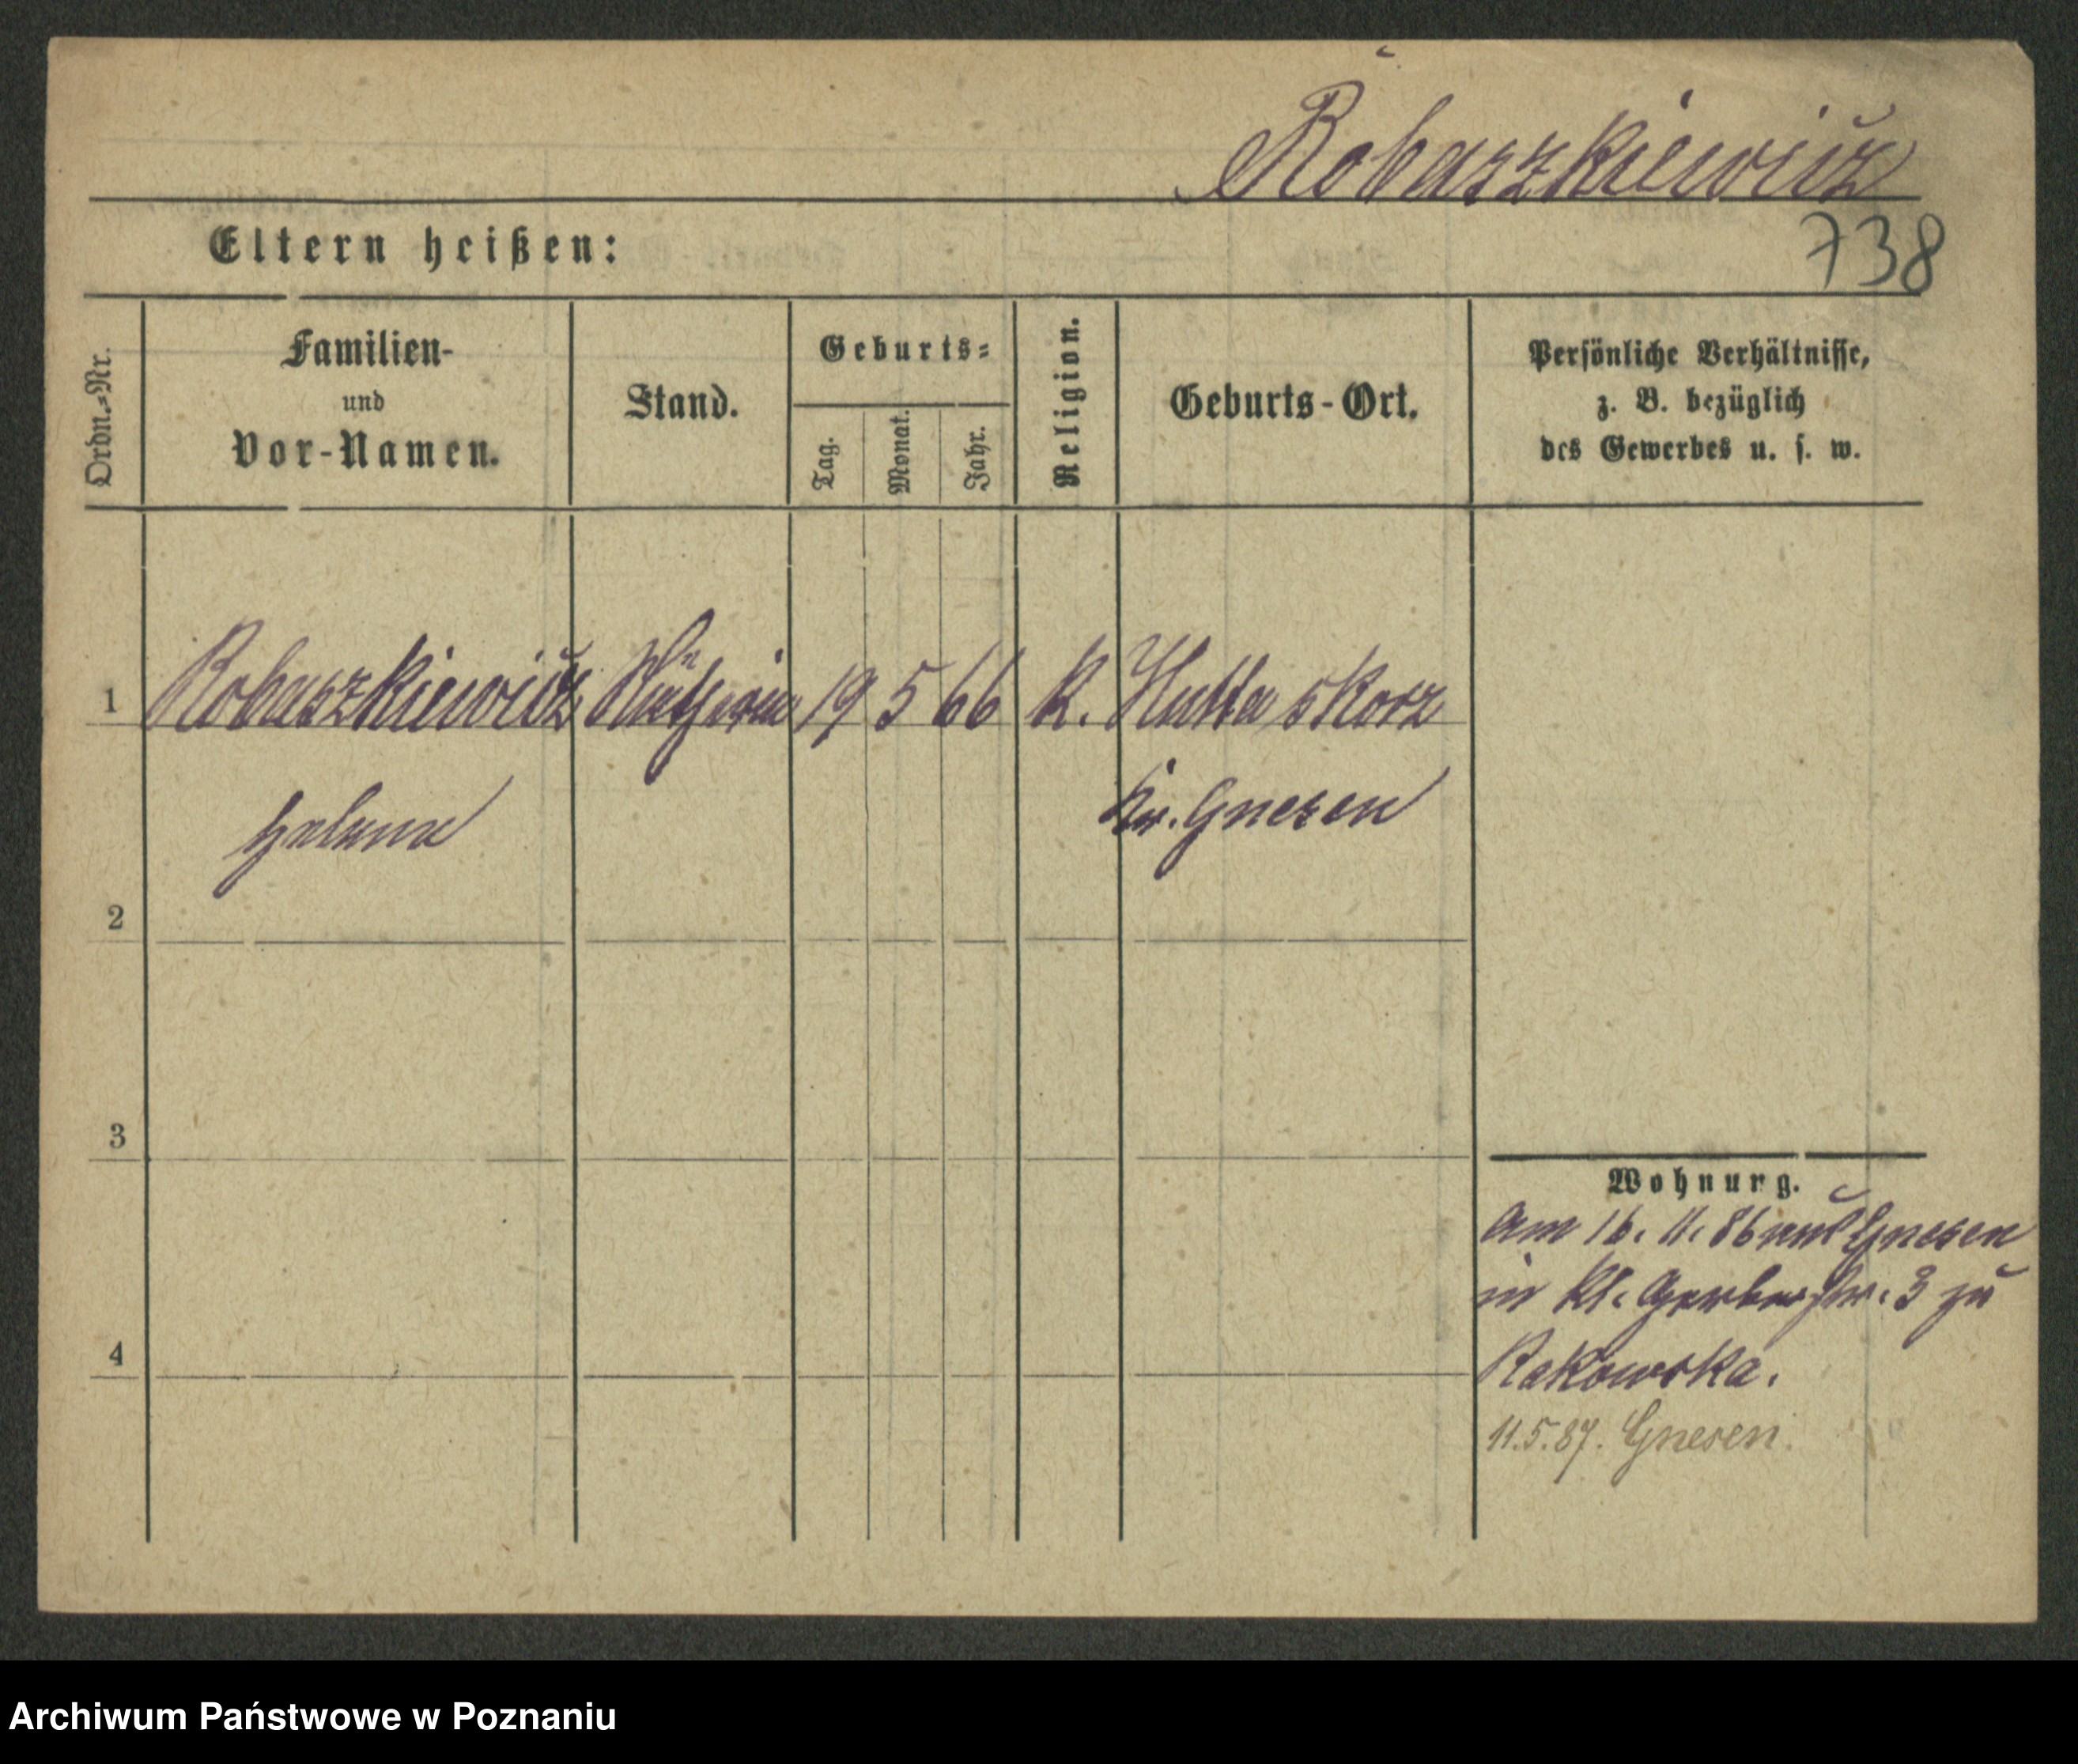 Robaszkiewicz
738
Eltern heißen:
Ordn.=Nr.
Familien-
und
Vor-Namen.
Stand.
Geburts=
Tag.
Monat.
Jahr.
Religion.
Geburts-Ort.
Persönliche Verhältnisse,
z. B. bezüglich
des Gewerbes u. s. w.
1 Robaszkiewicz 19 5 66 K. Hutta skorz
Helena Kr. Gnesen
2
3
4
Wohnung.
Am 16. 11. 86 aus Gnesen
in Kl. Gerberstr. 3 zu
Rakowska.
11.5.87. Gnesen.
Archiwum Państwowe w Poznaniu